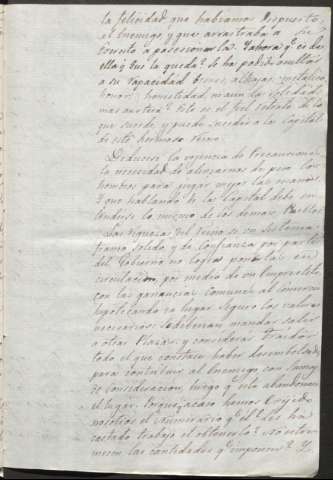 la felicidad que habiamos dispuesto
el Enemigo, y que arrastraba a su
a posecionarla. Y ahora q.e es de
ella y q.e le queda? Se ha podido ocultar
a su rapacidad bienes, alhajas, metalico
honor, honestidad, ni aun la Soledad
mas austera? Este es el fiel retrato de lo
que sucede, y puede suceder a la Capital
de este hermoso Reino.
Deducese la urgencia de Precauciones
la necesidad de alibiarnos de peso los
hombros para jugar mejor las manos.
Y que hablando de la Capital debe en
tenderse lo mismo de los demas Pueblos
Las riquezas del Reino si un Sistema
franco solido y de Confianza por parte
del Gobierno no logra ponerlas en
circulacion, por medio de un Emprestito
con las ganancias comunes al comercio
hipotecando en lugar Seguro los valores
necesarios: se deberian mandar salir
a otras Plazas, y considerar traidor
todo el que constase haber desembolsado
para contribuir al Enemigo, con
consideracion, luego q.e este abandonase
el lugar. Porque acaso hemos Exijido
nosotros el numerario q.e el? Les ha
costado trabajo el obtenerlo? No
las cantidades q.e imponen? Y